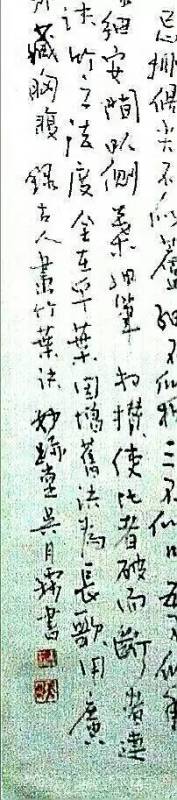 忌排偶尖不似蘆細不似柳三不似川五不似手
安間以側葉細筆相攢使比者破而斷者連
訣竹之法度全在乎葉因增舊訣為長歌用廣
藏胸腹錄古人畫竹葉訣妙堂吳月書